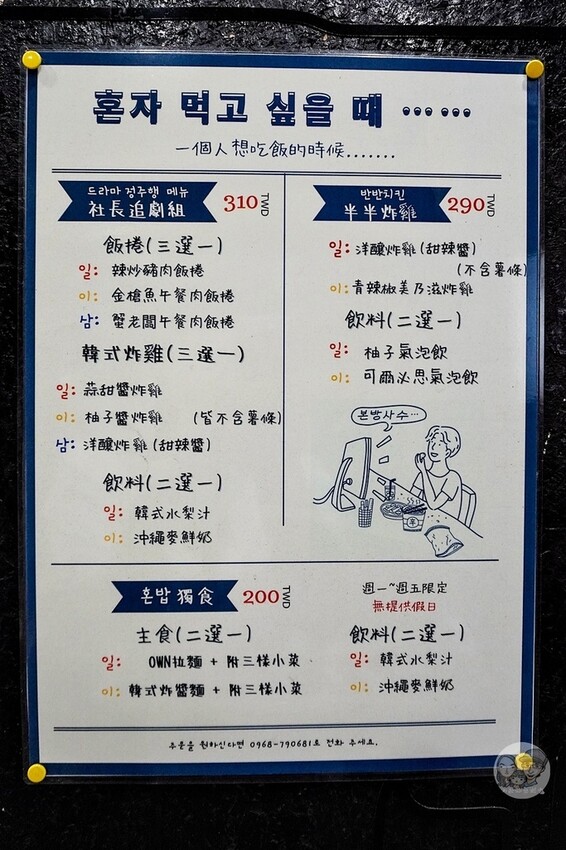 혼자 먹고 싶을 때 ••• •••
一個人想吃飯的時候.......
드라마 정주행 메뉴
社長追劇組
310 TWD
飯捲(三選一)
일: 辣炒豬肉飯捲
이: 金槍魚午餐肉飯捲
삼: 蟹老闆午餐肉飯捲
韓式炸雞(三選一)
일: 蒜甜醬炸雞
이: 柚子醬炸雞 (皆不含薯條)
삼: 洋釀炸雞(甜辣醬)
飲料(二選一)
일: 韓式水梨汁
이: 沖繩麥鮮奶
반반치킨
半半炸雞
290 TWD
일: 洋釀炸雞(甜辣醬)
(不含薯條)
이: 青辣椒美乃滋炸雞
飲料(二選一)
일: 柚子氣泡飲
이: 可爾必思氣泡飲
본방사수...
혼밥 獨食
200 TWD
主食(二選一)
일: OWN拉麵 + 附三樣小菜
이: 韓式炸醬麵 + 附三樣小菜
週一~週五限定
無提供假日
飲料(二選一)
일: 韓式水梨汁
이: 沖繩麥鮮奶
원하신다면 0968-790681로 전화 주세요.